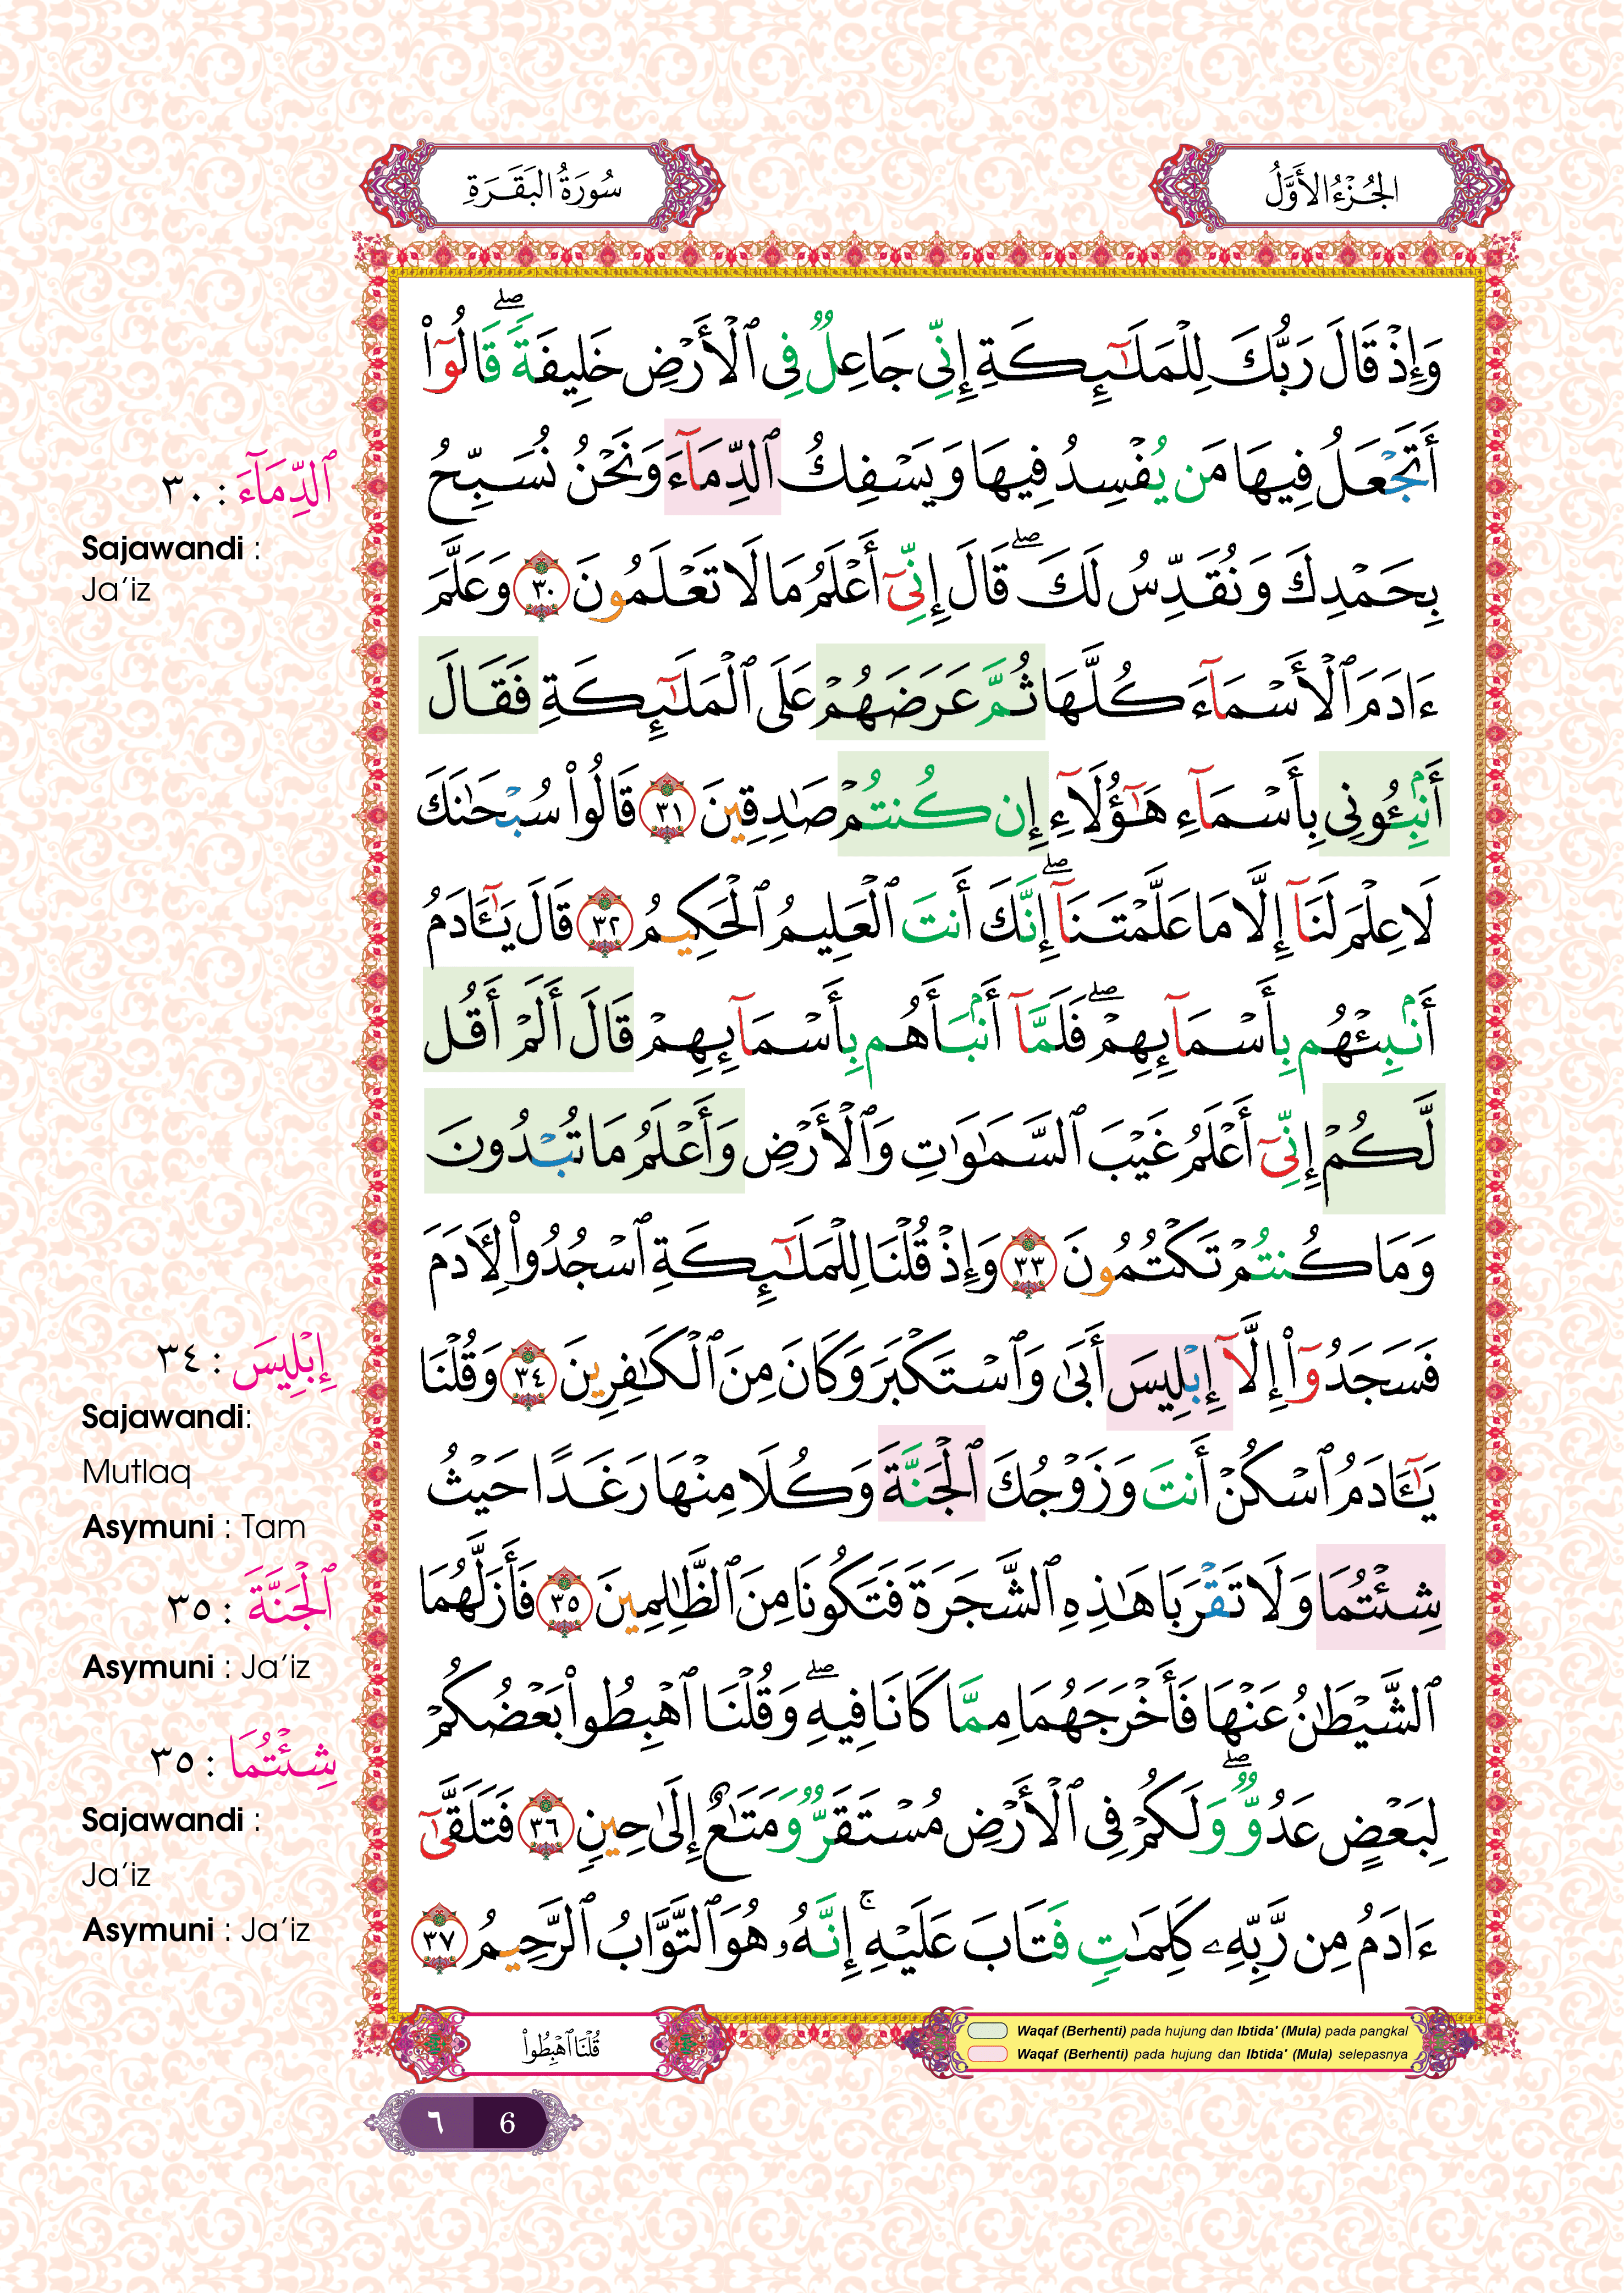 الجُزْءُ الأَوَّلُ
سُورَةُ البَقَرَةِ
وَإِذْ قَالَ رَبُّكَ لِلْمَلَـٰٓئِكَةِ إِنِّى جَاعِلٌ فِى ٱلْأَرْضِ خَلِيفَةً ۖ قَالُوٓا۟
أَتَجْعَلُ فِيهَا مَن يُفْسِدُ فِيهَا وَيَسْفِكُ ٱلدِّمَآءَ وَنَحْنُ نُسَبِّحُ
بِحَمْدِكَ وَنُقَدِّسُ لَكَ ۖ قَالَ إِنِّىٓ أَعْلَمُ مَا لَا تَعْلَمُونَ ٣٠ وَعَلَّمَ
ءَادَمَ ٱلْأَسْمَآءَ كُلَّهَا ثُمَّ عَرَضَهُمْ عَلَى ٱلْمَلَـٰٓئِكَةِ فَقَالَ
أَنۢبِـُٔونِى بِأَسْمَآءِ هَـٰٓؤُلَآءِ إِن كُنتُمْ صَـٰدِقِينَ ٣١ قَالُوا۟ سُبْحَـٰنَكَ
لَا عِلْمَ لَنَآ إِلَّا مَا عَلَّمْتَنَآ ۖ إِنَّكَ أَنتَ ٱلْعَلِيمُ ٱلْحَكِيمُ ٣٢ قَالَ يَـٰٓـَٔادَمُ
أَنۢبِئْهُم بِأَسْمَآئِهِمْ ۖ فَلَمَّآ أَنۢبَأَهُم بِأَسْمَآئِهِمْ قَالَ أَلَمْ أَقُل
لَّكُمْ إِنِّىٓ أَعْلَمُ غَيْبَ ٱلسَّمَـٰوَٰتِ وَٱلْأَرْضِ وَأَعْلَمُ مَا تُبْدُونَ
وَمَا كُنتُمْ تَكْتُمُونَ ٣٣ وَإِذْ قُلْنَا لِلْمَلَـٰٓئِكَةِ ٱسْجُدُوا۟ لِـَٔادَمَ
فَسَجَدُوٓا۟ إِلَّآ إِبْلِيسَ أَبَىٰ وَٱسْتَكْبَرَ وَكَانَ مِنَ ٱلْكَـٰفِرِينَ ٣٤ وَقُلْنَا
يَـٰٓـَٔادَمُ ٱسْكُنْ أَنتَ وَزَوْجُكَ ٱلْجَنَّةَ وَكُلَا مِنْهَا رَغَدًا حَيْثُ
شِئْتُمَا وَلَا تَقْرَبَا هَـٰذِهِ ٱلشَّجَرَةَ فَتَكُونَا مِنَ ٱلظَّـٰلِمِينَ ٣٥ فَأَزَلَّهُمَا
ٱلشَّيْطَـٰنُ عَنْهَا فَأَخْرَجَهُمَا مِمَّا كَانَا فِيهِ ۖ وَقُلْنَا ٱهْبِطُوا۟ بَعْضُكُمْ
لِبَعْضٍ عَدُوٌّ ۖ وَلَكُمْ فِى ٱلْأَرْضِ مُسْتَقَرٌّ وَمَتَـٰعٌ إِلَىٰ حِينٍ ٣٦ فَتَلَقَّىٰٓ
ءَادَمُ مِن رَّبِّهِۦ كَلِمَـٰتٍ فَتَابَ عَلَيْهِ ۚ إِنَّهُۥ هُوَ ٱلتَّوَّابُ ٱلرَّحِيمُ ٣٧
ٱلدِّمَآءَ : ٣٠
Sajawandi :
Ja’iz
إِبْلِيسَ : ٣٤
Sajawandi:
Mutlaq
Asymuni : Tam
ٱلْجَنَّةَ : ٣٥
Asymuni : Ja’iz
شِئْتُمَا : ٣٥
Sajawandi :
Ja’iz
Asymuni : Ja’iz
Waqaf (Berhenti) pada hujung dan Ibtida' (Mula) pada pangkal
Waqaf (Berhenti) pada hujung dan Ibtida' (Mula) selepasnya
قُلْنَا ٱهْبِطُوا۟
٦ 6